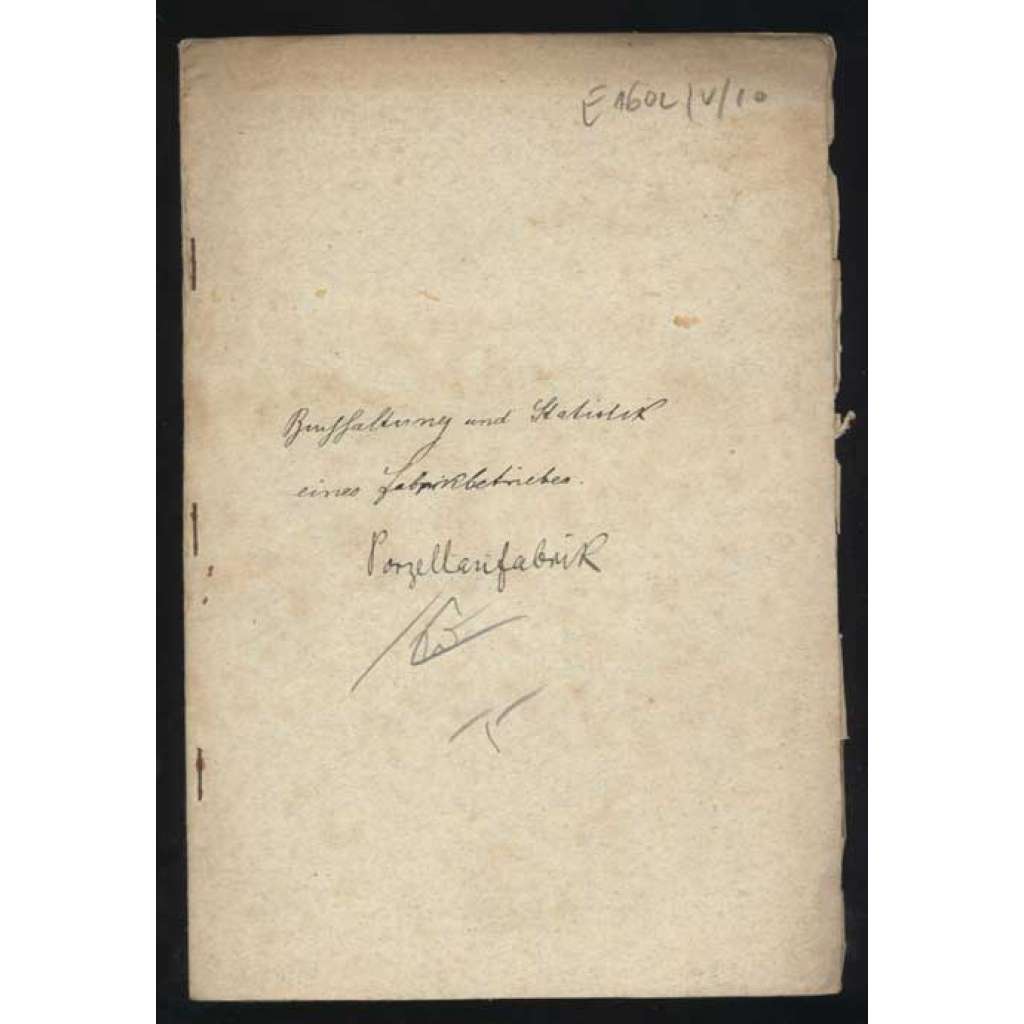 E 1602 / V / 10
Buchhaltung und Statistik
eines Fabrikbetriebes.
Porzellanfabrik